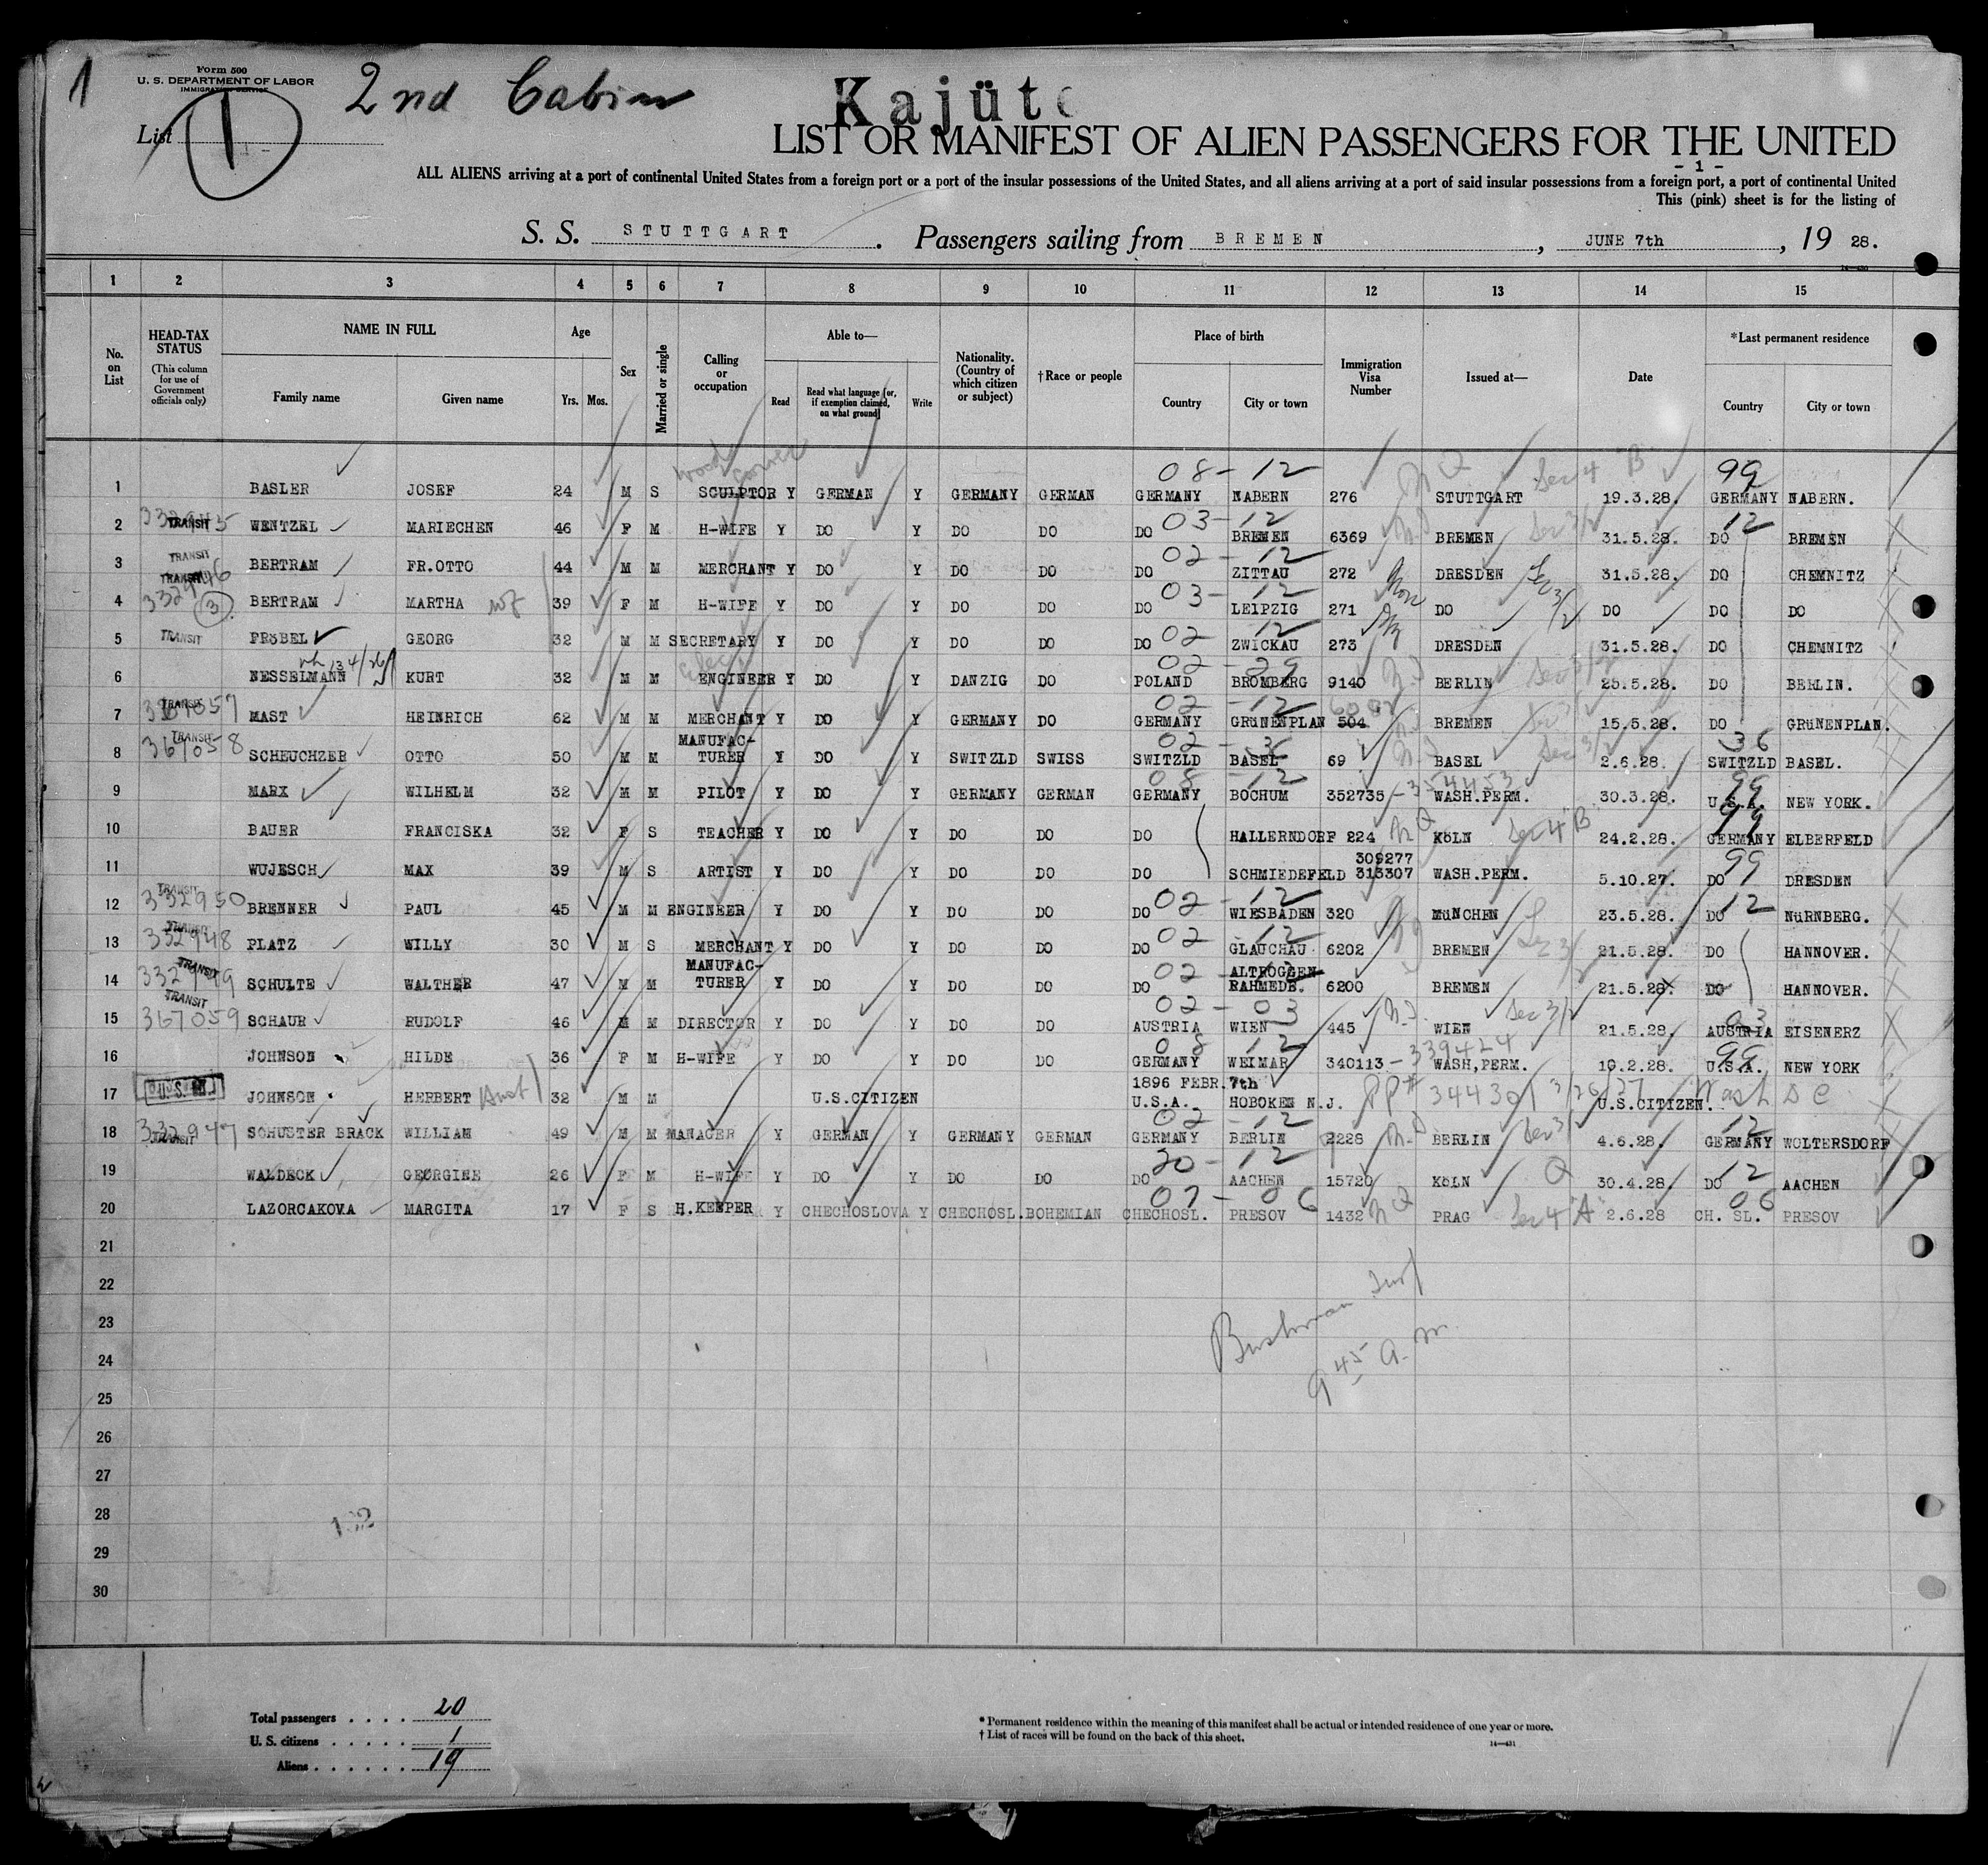 1
Form 500
U. S. DEPARTMENT OF LABOR
IMMIGRATION SERVICE
2nd Cabin
Kajüte
List 1
LIST OR MANIFEST OF ALIEN PASSENGERS FOR THE UNITED
- 1 -
ALL ALIENS arriving at a port of continental United States from a foreign port or a port of the insular possessions of the United States, and all aliens arriving at a port of said insular possessions from a foreign port, a port of continental United
This (pink) sheet is for the listing of
S. S. STUTTGART. Passengers sailing from BREMEN, JUNE 7th, 19 28.
1 2 3 4 5 6 7 8 9 10 11 12 13 14 15
No. on List
HEAD-TAX STATUS (This column for use of Government officials only)
NAME IN FULL
Family name Given name
Age
Yrs. Mos.
Sex
Married or single
Calling or occupation
Able to—
Read Read what language [or, if exemption claimed, on what ground] Write
Nationality. (Country of which citizen or subject)
†Race or people
Place of birth
Country City or town
Immigration Visa Number
Issued at—
Date
*Last permanent residence
Country City or town
wood carver 08-12 NQ Sec 4 "B" 99
1 BASLER JOSEF 24 M S SCULPTOR Y GERMAN Y GERMANY GERMAN GERMANY NABERN 276 STUTTGART 19.3.28. GERMANY NABERN.
332945 03-12 Sec 3/2 12
2 TRANSIT WENTZEL MARIECHEN 46 F M H-WIFE Y DO Y DO DO DO BREMEN 6369 BREMEN 31.5.28. DO BREMEN
02-12
3 TRANSIT BERTRAM FR.OTTO 44 M M MERCHANT Y DO Y DO DO DO ZITTAU 272 DRESDEN 31.5.28. DO CHEMNITZ
332946 03-12 Sec 3/2
4 TRANSIT (3) BERTRAM MARTHA wf 39 F M H-WIFE Y DO Y DO DO DO LEIPZIG 271 DO DO DO DO
02 12
5 TRANSIT FRöBEL GEORG 32 M M SECRETARY Y DO Y DO DO DO ZWICKAU 273 DRESDEN 31.5.28. DO CHEMNITZ
Elec 02-29 Sec 3/2
6 NESSELMANN KURT 32 M M ENGINEER Y DO Y DANZIG DO POLAND BROMBERG 9140 BERLIN 25.5.28. DO BERLIN.
367057 02-12 Sec 3/2
7 TRANSIT MAST HEINRICH 62 M M MERCHANT Y DO Y GERMANY DO GERMANY GRüNENPLAN 504 BREMEN 15.5.28. DO GRüNENPLAN.
367058 02-36 Sec 3/2 36
8 TRANSIT SCHEUCHZER OTTO 50 M M MANUFAC-TURER Y DO Y SWITZLD SWISS SWITZLD BASEL 69 BASEL 2.6.28. SWITZLD BASEL.
08-12 354453 99
9 MARX WILHELM 32 M M PILOT Y DO Y GERMANY GERMAN GERMANY BOCHUM 352735 - WASH.PERM. 30.3.28. U.S.A. NEW YORK.
NQ Sec 4 "B" 99
10 BAUER FRANCISKA 32 F S TEACHER Y DO Y DO DO DO HALLERNDORF 224 KöLN 24.2.28. GERMANY ELBERFELD
309277 99
11 WUJESCH MAX 39 M S ARTIST Y DO Y DO DO DO SCHMIEDEFELD 313307 WASH.PERM. 5.10.27. DO DRESDEN
332950 02-12 12
12 TRANSIT BRENNER PAUL 45 M M ENGINEER Y DO Y DO DO DO WIESBADEN 320 MüNCHEN 23.5.28. DO NüRNBERG.
332948 02-12 Sec 3/2
13 TRANSIT PLATZ WILLY 30 M S MERCHANT Y DO Y DO DO DO GLAUCHAU 6202 BREMEN 21.5.28. DO HANNOVER.
332949 02-12
14 TRANSIT SCHULTE WALTHER 47 M M MANUFAC-TURER Y DO Y DO DO DO ALTROGGEN RAHMEDE. 6200 BREMEN 21.5.28. DO HANNOVER.
367059 02-03 Sec 3/2 03
15 TRANSIT SCHAUR RUDOLF 46 M M DIRECTOR Y DO Y DO DO AUSTRIA WIEN 445 WIEN 21.5.28. AUSTRIA EISENERZ
08 12 339424 99
16 JOHNSON HILDE 36 F M H-WIFE Y DO Y DO DO GERMANY WEIMAR 340113 - WASH,PERM. 10.2.28. U.S.A. NEW YORK
1896 FEBR.7th PP# 344301 3/26/27 Wash DC
17 JOHNSON HERBERT Husb 32 M M U.S.CITIZEN U.S.A. HOBOKEN N.J. U.S.CITIZEN.
332947 02-12 Sec 3/ 12
18 TRANSIT SCHUSTER BRACK WILLIAM 49 M M MANAGER Y GERMAN Y GERMANY GERMAN GERMANY BERLIN 2228 BERLIN 4.6.28. GERMANY WOLTERSDORF
20-12 Q 12
19 WALDECK GEORGINE 26 F M H-WIFE Y DO Y DO DO DO AACHEN 15720 KöLN 30.4.28. DO AACHEN
07-06 NQ Sec 4 "A" 06
20 LAZORCAKOVA MARGITA 17 F S H.KEEPER Y CHECHOSLOVA Y CHECHOSL. BOHEMIAN CHECHOSL. PRESOV 1432 PRAG 2.6.28 CH. SL. PRESOV
21
22
23
24
25
26
27
28
29
30
9 45 a.m.
132
Total passengers . . . . 20
U. S. citizens . . . . . 1
Aliens . . . . . . 19
* Permanent residence within the meaning of this manifest shall be actual or intended residence of one year or more.
† List of races will be found on the back of this sheet.
14—431